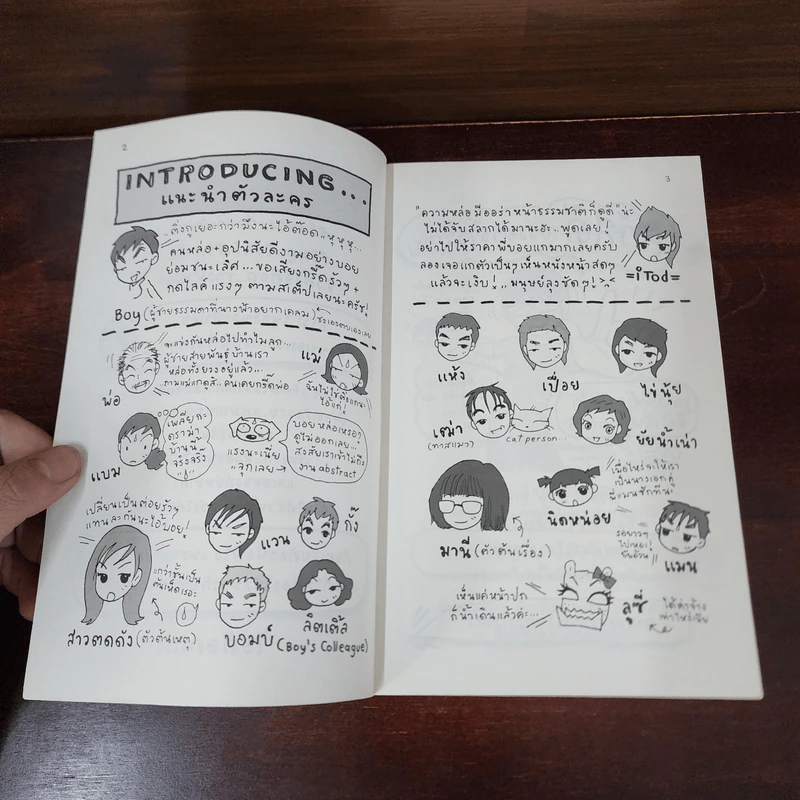 2
INTRODUCING...
แนะนำตัวละคร
คนหล่อ+อุปนิสัยดีงามอย่างบอย
ย่อมชนะเลิศ...ขอเสียงกรี๊ดรัวๆ+
กดไลค์แรงๆ ตามสเต็ปเลยนะครัช!
Boy (ผู้ชายธรรมดาที่นางฟ้าอยากเคลม)
จะแข่งกันหล่อไปทำไมลูก...
ผู้ชายสายพันธุ์บ้านเรา
หล่อทั้งยวงอยู่แล้ว...
คนเคยกรี๊ดพ่อ
พ่อ
แม่
ฉันไม่ใช่
แบม
เพลียกะ
ดราม่า
บ้านนี้
จริงจริ๊ง
แรงนะเนี่ย
จุกเลย→
บอยหล่อเหรอ?
ดูไม่ออกเลย...
สงสัยเราเข้าไม่ถึง
งาน abstract
เปลี่ยนเป็นต่อยรัวๆ
แทนละกันนะไอ้บอย!
สาวตดดัง (ตัวต้นเหตุ)
แวน
กั๊ง
บอมบ์
ลิตเติ้ล
(Boy's Colleague)
3
"ความหล่อมีออร่าหน้าธรรมชาติก็ดูดี" น่ะ
ไม่ได้จับสลากได้มานะฮะ..พูดเลย!
อย่าไปให้ราคาพี่บอยแกมากเลยครับ
ลองเจอแกตัวเป็นๆ เห็นหนังหน้าสดๆ
แล้วจะเงิบ!..มนุษย์ลุงชัดๆ!
=iTod=
แห้ง
เปื่อย
ไข่นุ้ย
เฒ่า
(ทาสแมว)
cat person...
ยัยน้ำเน่า
มานี (ตัวต้นเรื่อง)
นิดหน่อย
เมื่อไหร่จะให้เรา
เป็นนางเอกคู่
พี่แมนซักทีน้า
รอยาวๆ
ไปเหอะ!
ยัยอ้วน
แมน
เห็นแค่หน้าปก
ก็น้ำเดินแล้วค่ะ...
ลูซี่
ได้ค่าจ้าง
เท่าไหร่เนี่ย